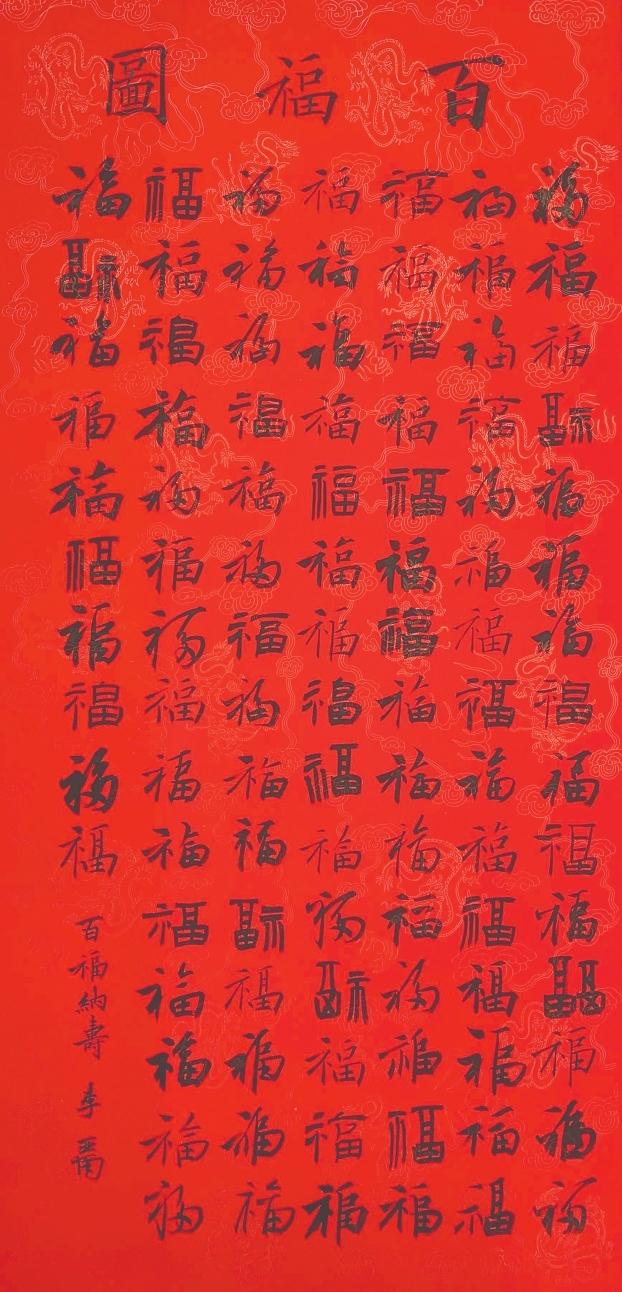 百福圖
福福福福福福福福福福福福福福福
福福福福福福福福福福福福福福福
福福福福福福福福福福福福福福福
福福福福福福福福福福福福福福福
福福福福福福福福福福福福福福福
福福福福福福福福福福福福福福福
福福福福福福福福福福
百福納壽 李